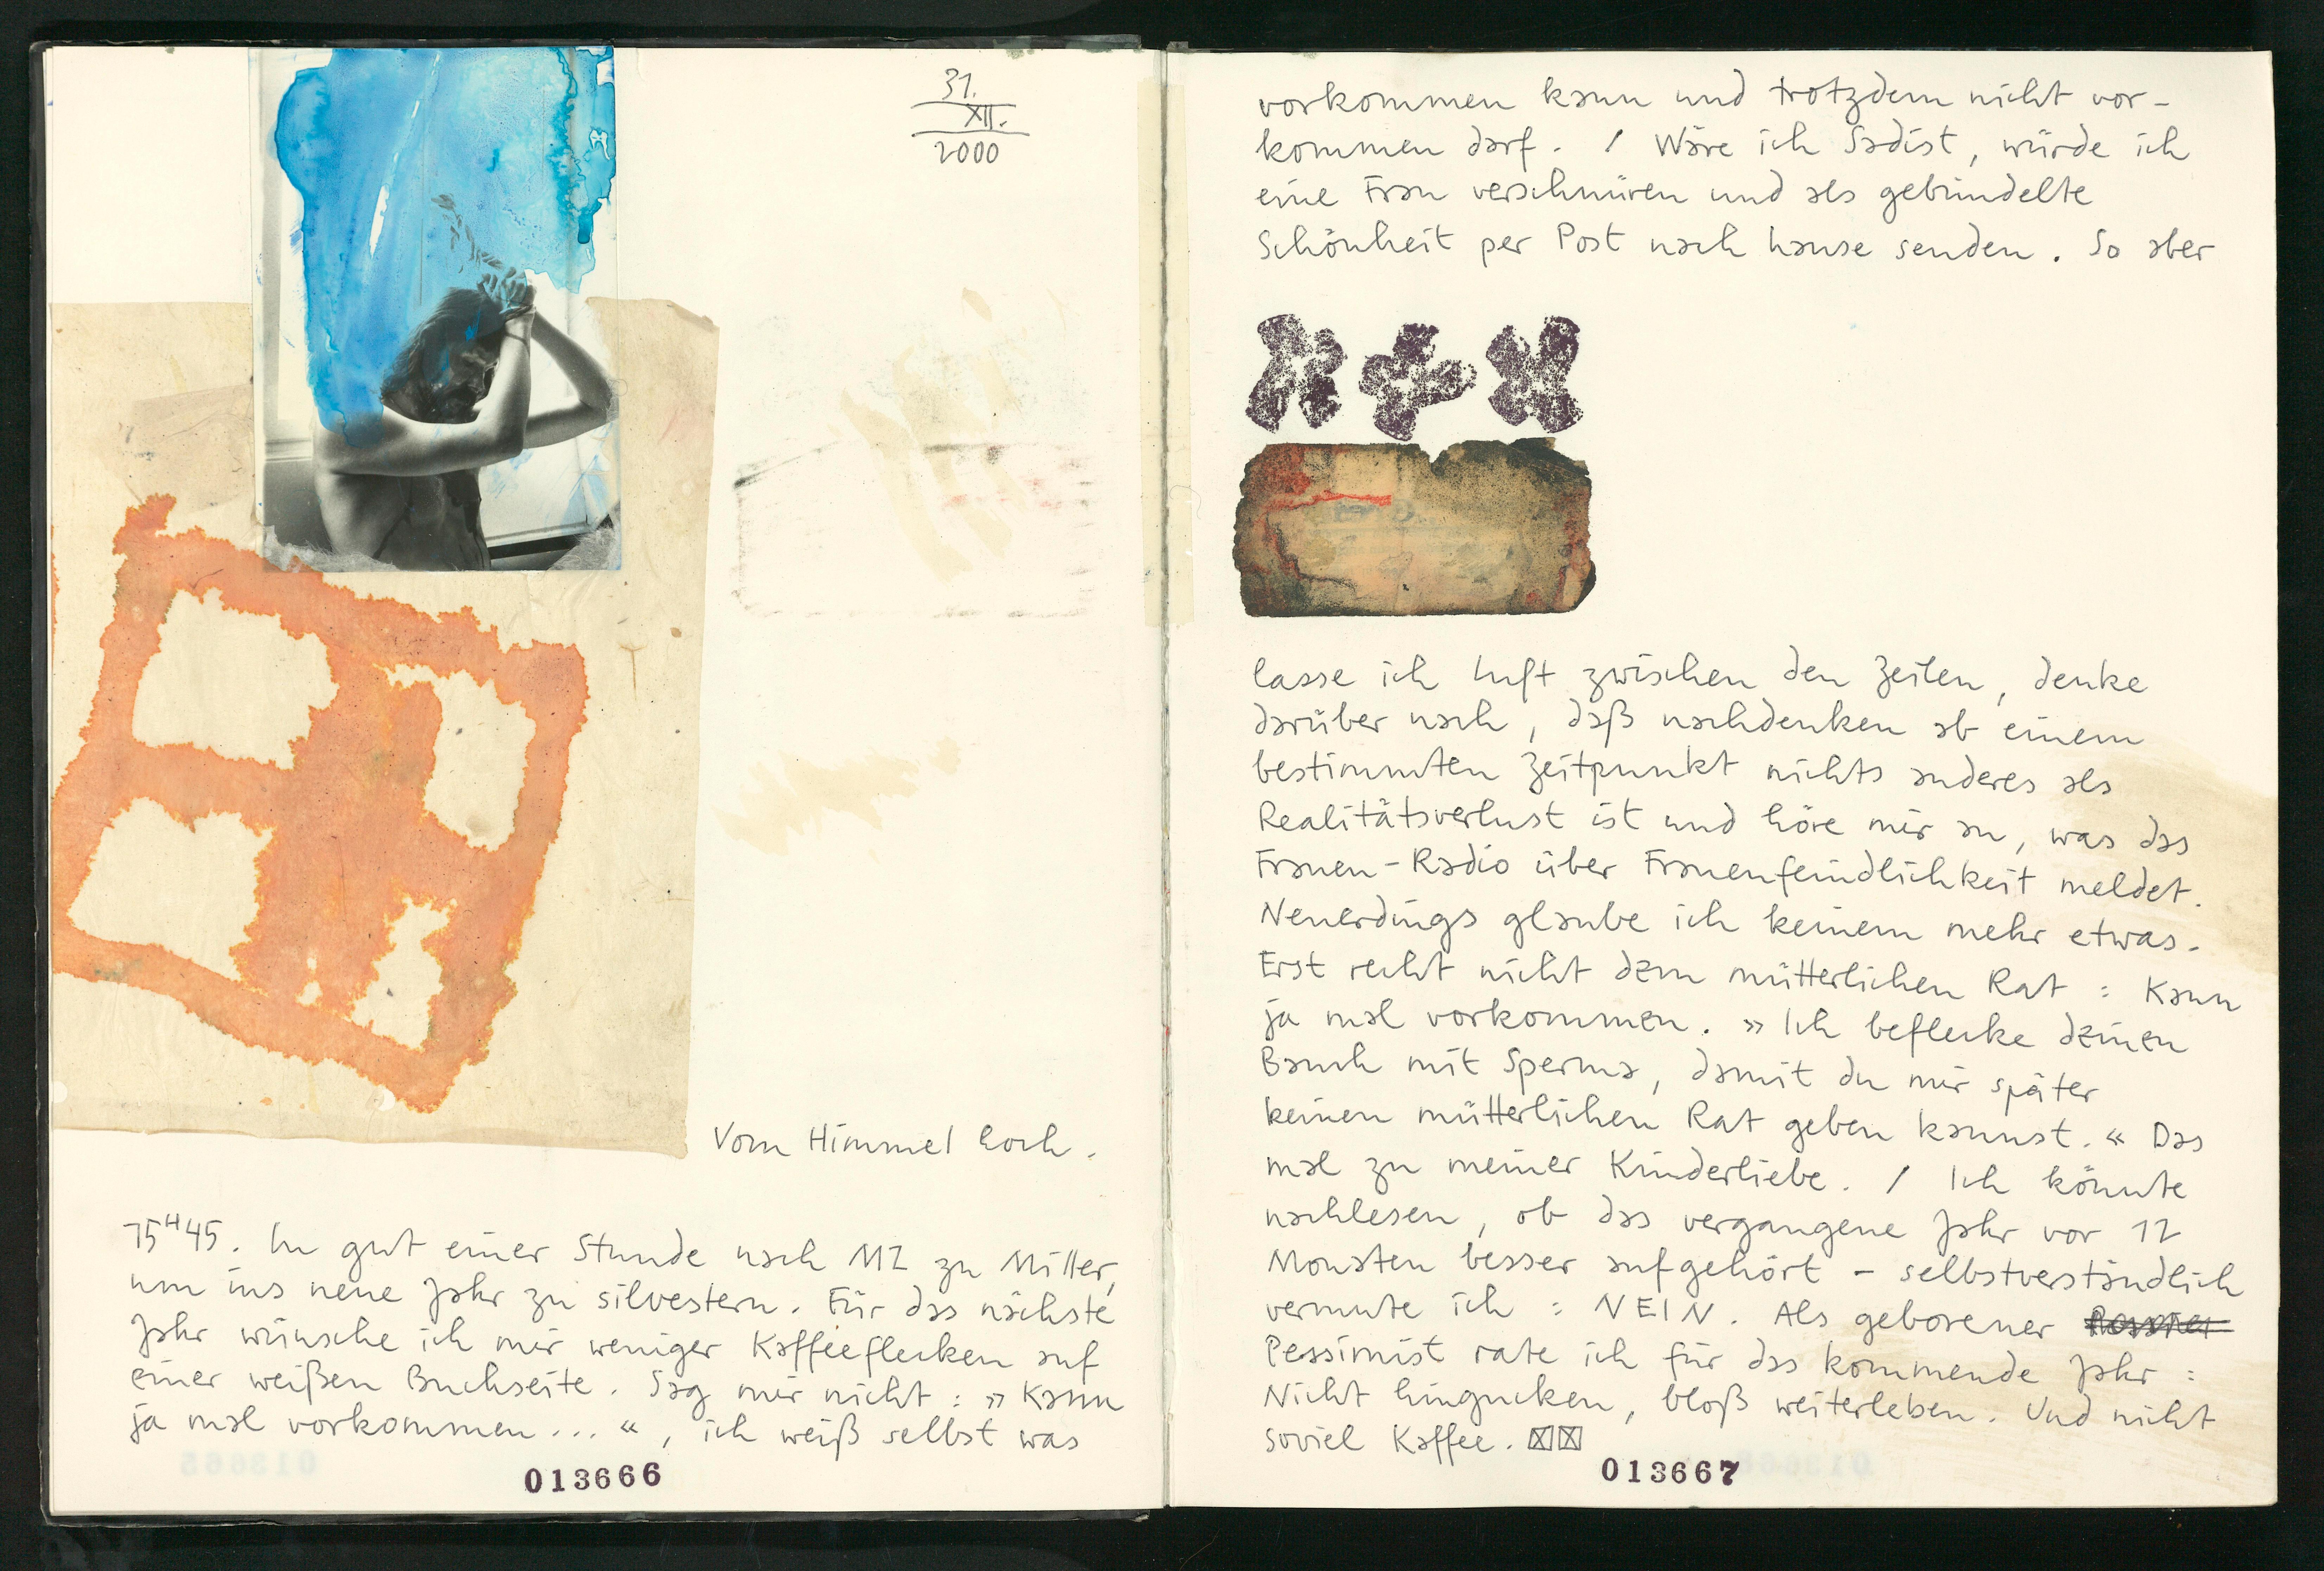 31.
XII.
2000
Vom Himmel hoch.
15H45. In gut einer Stunde nach MZ zu Miller,
um ins neue Jahr zu silvestern. Für das nächste
Jahr wünsche ich mir weniger Kaffeeflecken auf
einer weißen Buchseite. Sag mir nicht: »Kann
ja mal vorkommen...«, ich weiß selbst was
013666
vorkommen kann und trotzdem nicht vor-
kommen darf. / Wäre ich Sadist, würde ich
eine Frau verschnüren und als gebündelte
Schönheit per Post nach hause senden. So aber
lasse ich Luft zwischen den Zeilen, denke
darüber nach, daß nachdenken ab einem
bestimmten Zeitpunkt nichts anderes als
Realitätsverlust ist und höre mir an, was das
Frauen-Radio über Frauenfeindlichkeit meldet.
Neuerdings glaube ich keinem mehr etwas.
Erst recht nicht dem mütterlichen Rat: Kann
ja mal vorkommen. »Ich beflecke deinen
Bauch mit Sperma, damit du mir später
keinen mütterlichen Rat geben kannst.« Das
mal zu meiner Kinderliebe. / Ich könnte
nachlesen, ob das vergangene Jahr vor 12
Monaten besser aufgehört – selbstverständlich
vermute ich: NEIN. Als geborener
Pessimist rate ich für das kommende Jahr:
Nicht hingucken, bloß weiterleben. Und nicht
soviel Kaffee. ☒☒
013667